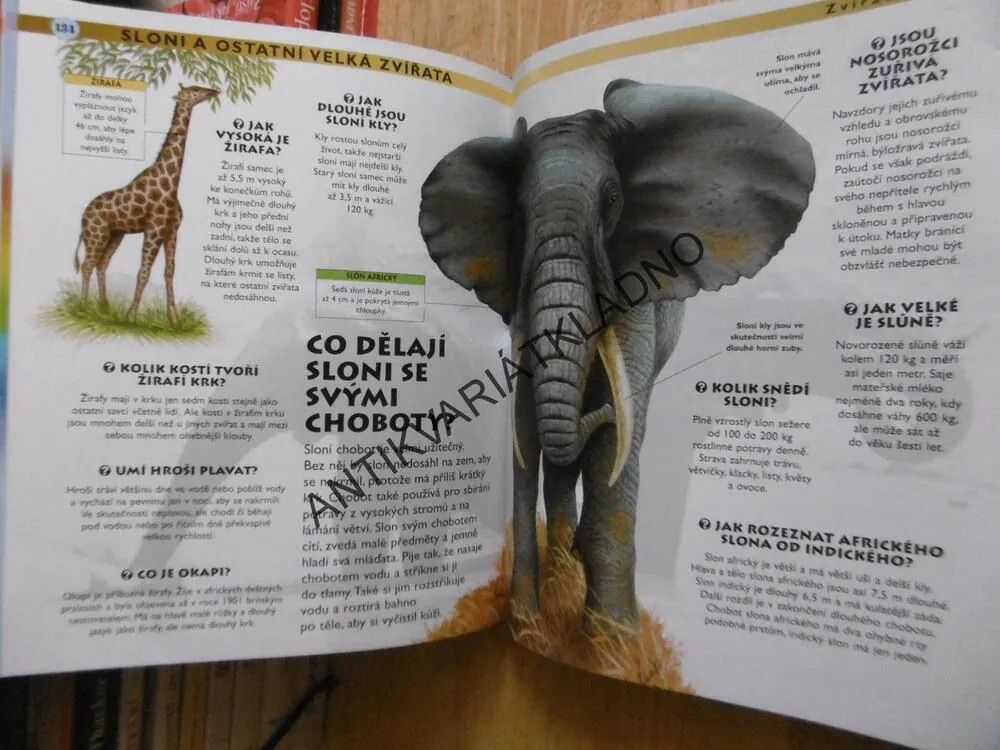 134
SLONI A OSTATNÍ VELKÁ ZVÍŘATA
ŽIRAFA
Žirafy mohou
vypláznout jazyk
až do délky
46 cm, aby lépe
dosáhly na
nejvyšší listy.
? JAK
VYSOKÁ JE
ŽIRAFA?
Žirafí samec je
až 5,5 m vysoký
ke konečkům rohů.
Má výjimečně dlouhý
krk a jeho přední
nohy jsou delší než
zadní, takže tělo se
sklání dolů až k ocasu.
Dlouhý krk umožňuje
žirafám krmit se listy,
na které ostatní zvířata
nedosáhnou.
? JAK
DLOUHÉ JSOU
SLONÍ KLY?
Kly rostou slonům celý
život, takže nejstarší
sloni mají nejdelší kly.
Starý sloní samec může
mít kly dlouhé
až 3,5 m a vážící
120 kg.
SLON AFRICKÝ
Šedá sloní kůže je tlustá
až 4 cm a je pokrytá jemnými
chloupky.
? KOLIK KOSTÍ TVOŘÍ
ŽIRAFÍ KRK?
Žirafy mají v krku jen sedm kostí stejně jako
ostatní savci včetně lidí. Ale kosti v žirafím krku
jsou mnohem delší než u jiných zvířat a mají mezi
sebou mnohem ohebnější klouby.
? UMÍ HROŠI PLAVAT?
Hroši tráví většinu dne ve vodě nebo poblíž vody
a vychází na pevninu jen v noci, aby se nakrmili.
Ve skutečnosti neplavou, ale chodí či běhají
pod vodou nebo po říčním dně překvapivě
velkou rychlostí.
? CO JE OKAPI?
Okapi je příbuzná žirafy. Žije v afrických deštných
pralesích a byla objevena až v roce 1901 britským
cestovatelem. Má na hlavě malé růžky a dlouhý
jazyk jako žirafy, ale nemá dlouhý krk.
CO DĚLAJÍ
SLONI SE
SVÝMI
CHOBOTY?
Sloní chobot je velmi užitečný.
Bez něj by slon nedosáhl na zem, aby
se nakrmil, protože má příliš krátký
krk. Chobot také používá pro sbírání
potravy z vysokých stromů a na
lámání větví. Slon svým chobotem
cítí, zvedá malé předměty a jemně
hladí svá mláďata. Pije tak, že nasaje
chobotem vodu a stříkne si ji
do tlamy. Také si jím rozstřikuje
vodu a roztírá bahno
po těle, aby si vyčistil kůži.
Sloni mává
svýma velkýma
ušima, aby se
ochladil.
Sloní kly jsou ve
skutečnosti velmi
dlouhé horní zuby.
? JSOU
NOSOROŽCI
ZUŘIVÁ
ZVÍŘATA?
Navzdory jejich zuřivému
vzhledu a obrovskému
rohu jsou nosorožci
mírná, býložravá zvířata.
Pokud se však podráždí,
zaútočí nosorožci na
svého nepřítele rychlým
během s hlavou
skloněnou a připravenou
k útoku. Matky bránící
své mládě mohou být
obzvlášť nebezpečné.
? JAK VELKÉ
JE SLŮNĚ?
Novorozené slůně váží
kolem 120 kg a měří
asi jeden metr. Saje
mateřské mléko
nejméně dva roky, kdy
dosáhne váhy 600 kg,
ale může sát až
do věku šesti let.
? KOLIK SNĚDÍ
SLONI?
Plně vzrostlý slon sežere
od 100 do 200 kg
rostlinné potravy denně.
Strava zahrnuje trávu,
větvičky, klacky, listy, květy
a ovoce.
? JAK ROZEZNAT AFRICKÉHO
SLONA OD INDICKÉHO?
Slon africký je větší a má větší uši a delší kly.
Hlava a tělo slona afrického jsou asi 7,5 m dlouhé.
Slon indický je dlouhý 6,5 m a má kulatější záda.
Další rozdíl je v zakončení dlouhého chobotu.
Chobot slona afrického má dva ohybné rty
podobné prstům, indický slon má jen jeden.
ANTIKVARIÁTKLADNO